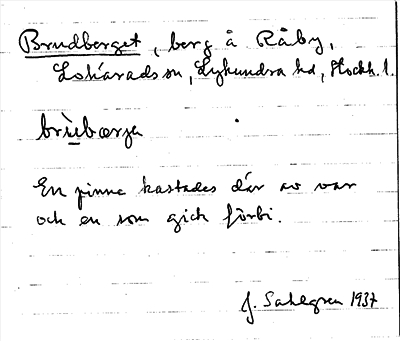 Brudberget, berg å Råby,
Lohärads sn, Lyhundra hd, Stockh. l.
brùbærjə
En pinne kastades där av var
och en som gick förbi.
J. Sahlgren 1937